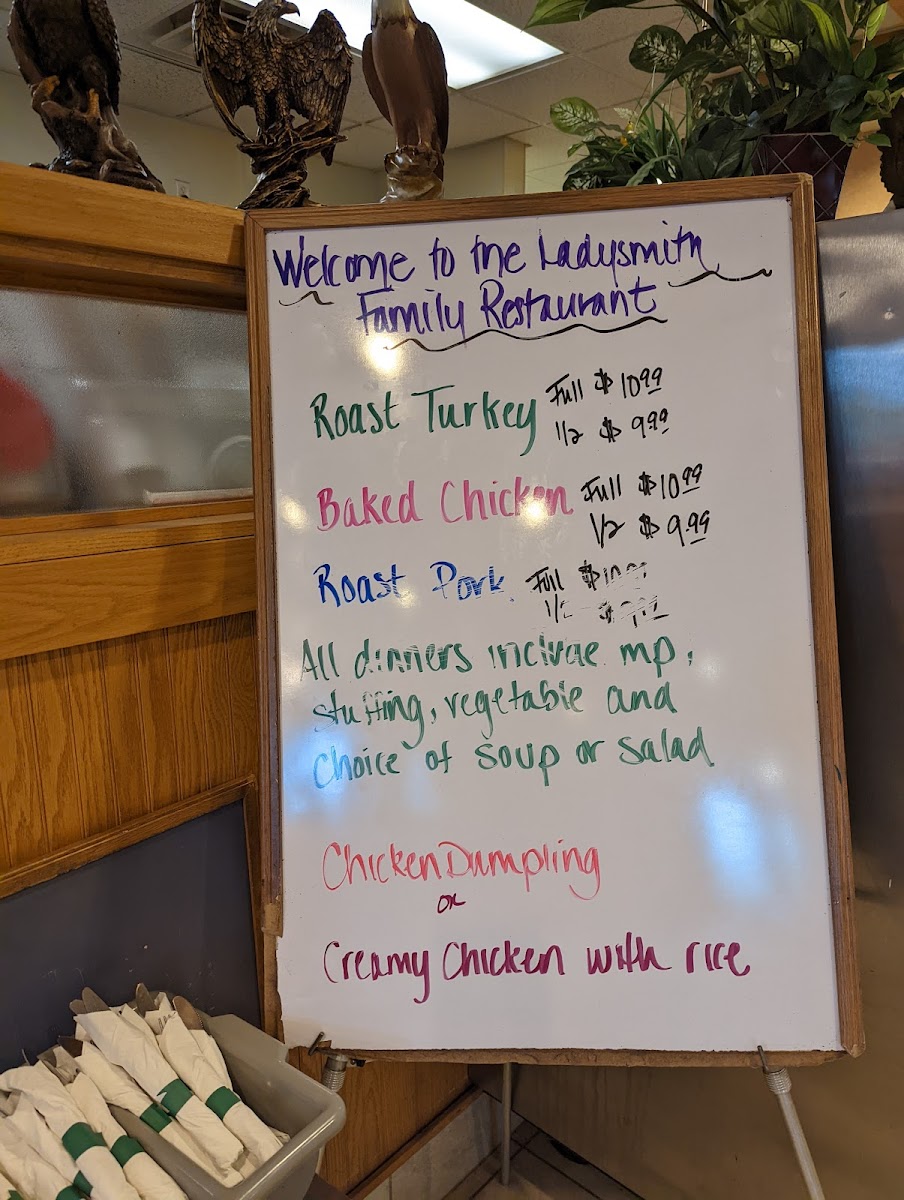 Welcome to the Ladysmith
Family Restaurant
Roast Turkey Full $10.99
1/2 $ 9.99
Baked Chicken Full $10.99
1/2 $9.99
Roast Pork Full
1/2
All dinners include mp,
stuffing, vegetable and
choice of soup or salad
Chicken Dumpling
or
Creamy Chicken with rice